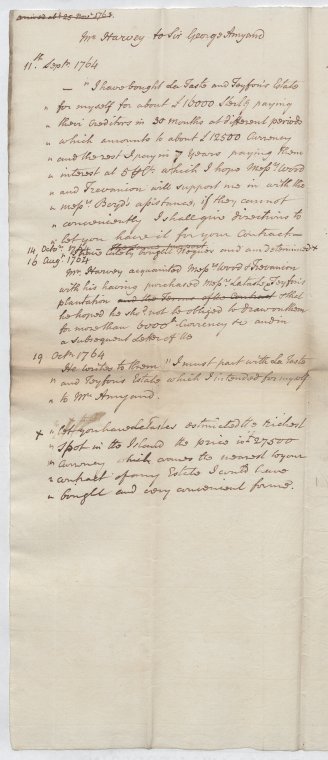 arrived at 25 Novr 1764.
Mr Harvey to Sir George Amyand
11th Septr 1764
— "I have bought La Taste and Teyfon's Estate
" for myself for about £10000 Sterlg paying
" their Creditors in 30 months at different periods
" which amounts to about £12500 Currency
" and the rest I pay in 7 Years paying them
" interest at 5 pCt which I hope Messrs Wood
" and Trevanion will support me in with the
" Messrs Boyd's assistance, if they cannot
" conveniently I shall give directions to
" let you have it for your Contract —
14 Octor 1764 I have lately bought Nogues and am determined x
16 Augt 1764
Mr Harvey acquainted Messrs Wood & Trevanion
with his having purchased Messrs La Taste & Teyfon's
plantation and the Terms of the Contract & that
he hoped he shd not be obliged to draw on them
for more than 6000 £ Currency & and in
a subsequent Letter of the
19 Octr 1764
He writes to them "I must part with La Taste
" and Teyfons Estate which I intended for myself
" to Mr Amyand.
x " let you have La Taste's esteemed the Richest
" Spot in the Island the price is £27500
" Currency which comes the nearest to your
" contract of any Estate I could have
" bought and very convenient for me.